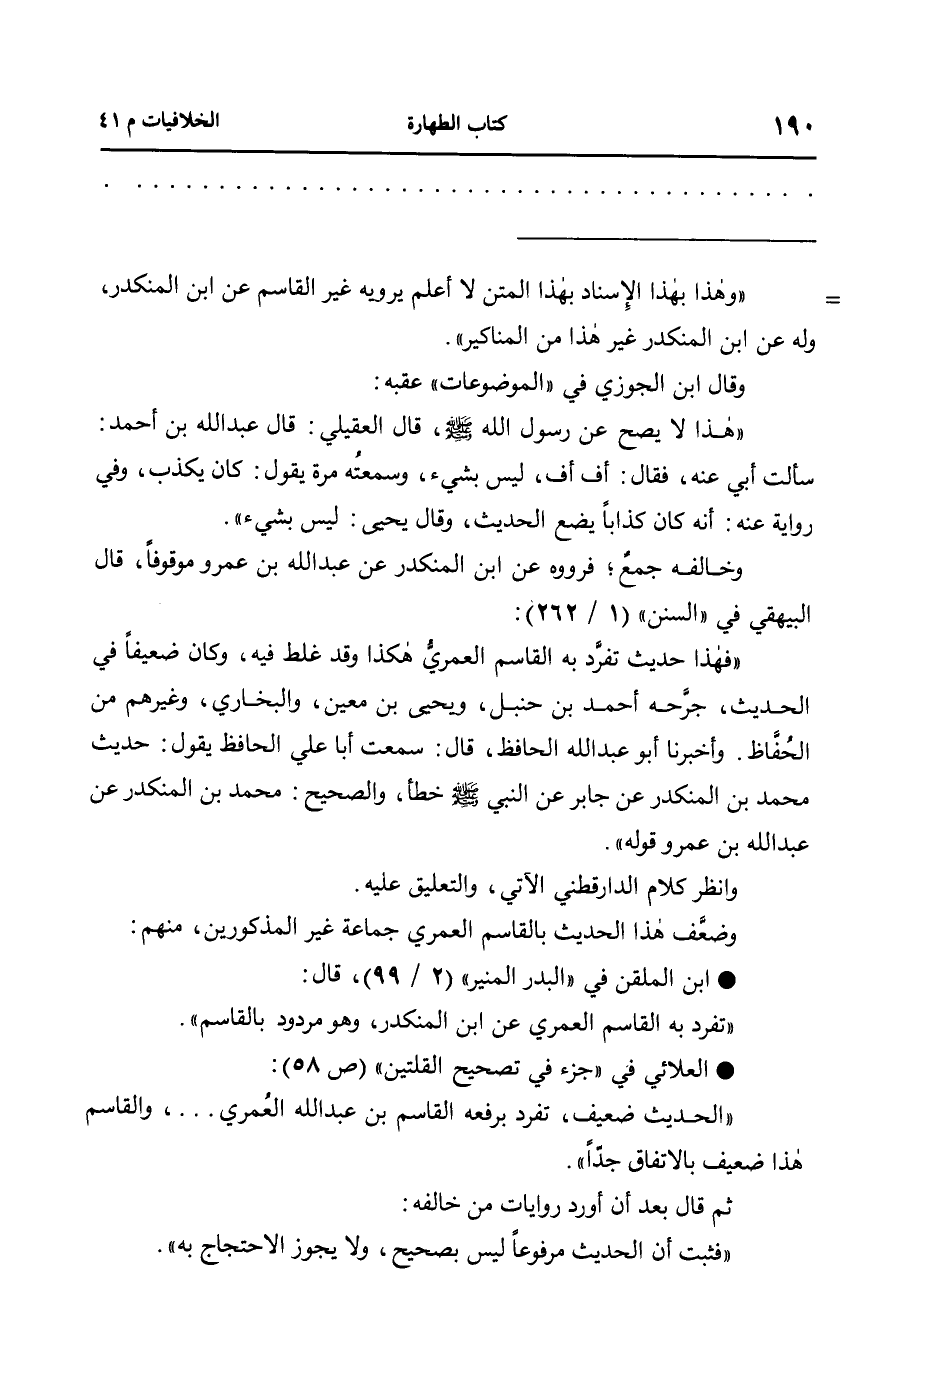 ١٩٠ كتاب الطهارة الخلافيات م ٤١
. . . . . . . . . . . . . . . . . . . . . . . . . . . . . . . . . . . . . . . . . .
= «وهٰذا بهٰذا الإِسناد بهٰذا المتن لا أعلم يرويه غير القاسم عن ابن المنكدر،
وله عن ابن المنكدر غير هٰذا من المناكير».
وقال ابن الجوزي في «الموضوعات» عقبه:
«هـٰذا لا يصح عن رسول الله ﷺ، قال العقيلي: قال عبدالله بن أحمد:
سألت أبي عنه، فقال: أف أف، ليس بشيء، وسمعتُه مرة يقول: كان يكذب، وفي
رواية عنه: أنه كان كذاباً يضع الحديث، وقال يحيى: ليس بشيء».
وخـالفـه جمعٌ؛ فرووه عن ابن المنكدر عن عبدالله بن عمرو موقوفاً، قال
البيهقي في «السنن» (١ / ٢٦٢):
«فهٰذا حديث تفرَّد به القاسم العمريُّ هٰكذا وقد غلط فيه، وكان ضعيفاً في
الحـديث، جرَّحـه أحمـد بن حنبـل، ويحيى بن معين، والبخاري، وغيرهم من
الحُفَّاظ. وأخبرنا أبو عبدالله الحافظ، قال: سمعت أبا علي الحافظ يقول: حديث
محمد بن المنكدر عن جابر عن النبي ﷺ خطأ، والصحيح: محمد بن المنكدر عن
عبدالله بن عمرو قوله».
وانظر كلام الدارقطني الآتي، والتعليق عليه.
وضعَّف هٰذا الحديث بالقاسم العمري جماعة غير المذكورين، منهم:
● ابن الملقن في «البدر المنير» (٢ / ٩٩)، قال:
«تفرد به القاسم العمري عن ابن المنكدر، وهو مردود بالقاسم».
● العلائي في «جزء في تصحيح القلتين» (ص ٥٨):
«الحـديث ضعيف، تفرد برفعه القاسم بن عبدالله العُمري . . . ، والقاسم
هٰذا ضعيف بالاتفاق جدّاً».
ثم قال بعد أن أورد روايات من خالفه:
«فثبت أن الحديث مرفوعاً ليس بصحيح، ولا يجوز الاحتجاج به».